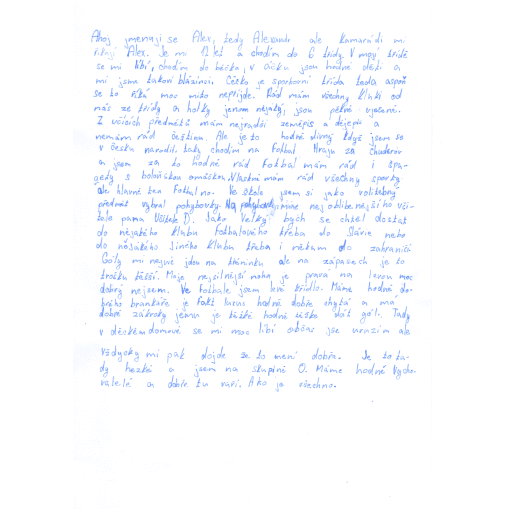 Ahoj jmenuji se Alex, tedy Alexandr ale kamarádi mi
říkají Alex. Je mi 12 let a chodím do 6 třídy. V mojí třídě
se mi líbí, chodím do béčka, v áčku jsou hodné děti a
mi jsme takoví blázínci. Céčko je sportovní třída teda aspoň
se to říká moc mito nepřijde. Rád mám všechny kluki od
nás ze třídy a holky jenom nějaký, jsou pěkně ujetené.
Z učících předmětů mám nejradši zeměpis a dějepis a
nemám rád češtinu. Ale je to hodně divný když jsem se
v česku narodil. taky chodím na fotbal. Hraju za Chuderov
a jsem za to hodně rád Fotbal mám rád i špa-
gety s boloňskou omáčkou. Vlastně mám rád všechny sporty
ale hlavně ten Fotbal no. Ve škole jsem si jako volitelný
předmět vybral pohybovky. Na pohybovky máme nejoblíbenějšího uči-
tele pana Učitele D. Jako Velký bych se chtěl dostat
do nějakého klubu fotbalového třeba do Slávie nebo
do nějakého jiného klubu třeba i někam do zahraničí
Góly mi nejvíc jdou na tréninku ale na zápasech je to
trošku těžší. Moje nejsilnější noha je pravá na levou moc
dobrý nejsem. Ve fotbale jsem levé křídlo. Máme hodně do-
brého brankáře je fakt luxus hodně dobře chytá a má
dobré zákroky jemu je těžké hodně těžko dát gól. Tady
v dětském domově se mi moc líbí občas jse urazím ale
vždycky mi pak dojde že to není dobře. Je to ta-
dy hezké a jsem na skupině O. Máme hodné Vycho-
vatelé a dobře tu vaří. A to je všechno.